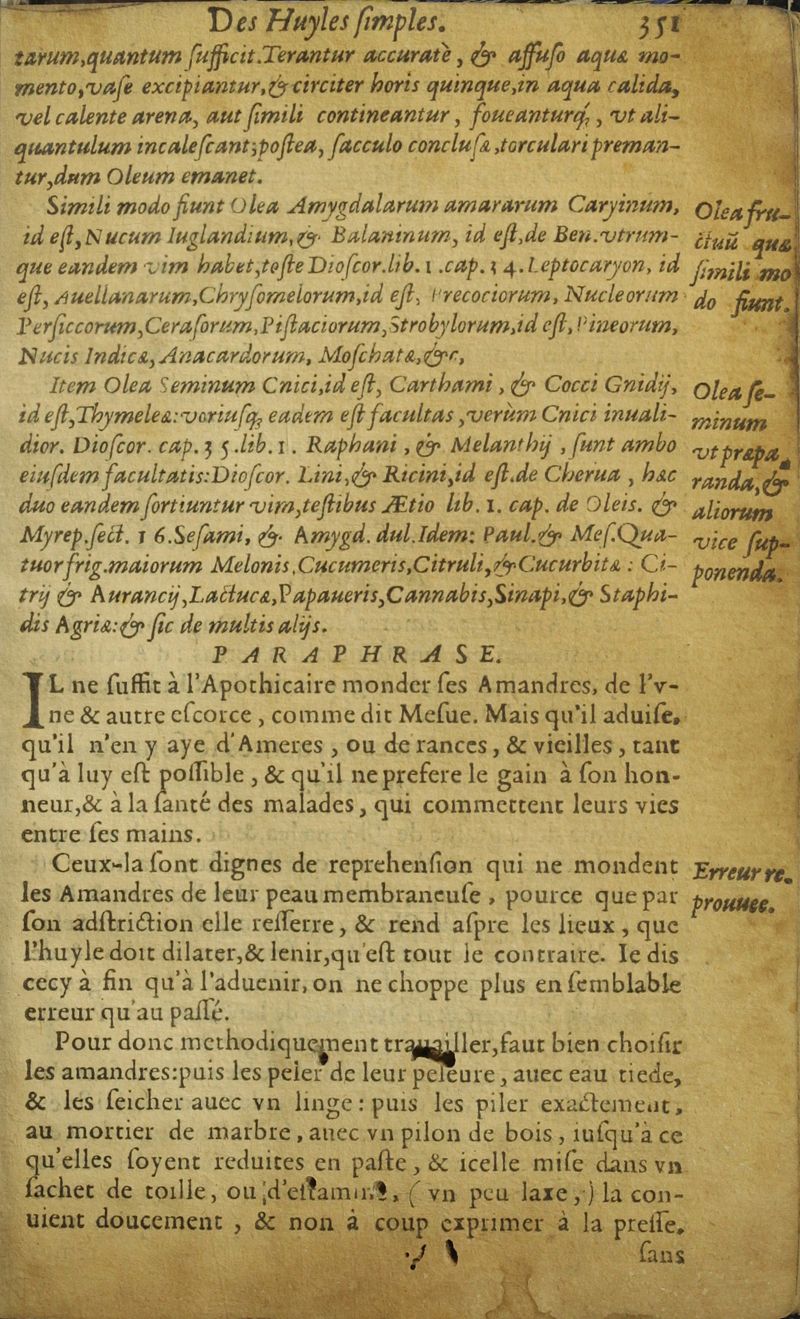 Des Huyles ſimples. 351
tarum,quantum ſufficit.Terantur accuratè, & affuſo aquæ mo-
mento,vaſe excipiantur,& circiter horis quinque,in aqua calida,
vel calente arena, aut ſimili contineantur, foueanturq́;, vt ali-
quantulum incaleſcant;poſtea, ſacculo concluſa,torculari preman-
tur,dum Oleum emanet.
Simili modo fiunt Olea Amygdalarum amararum Caryinum,
id eſt,Nucum Iuglandium,& Balaninum, id eſt,de Ben.vtrum-
que eandem vim habet,teſte Dioſcor.lib.1.cap.34.Leptocaryon, id
eſt, Auellanarum,Chryſomelorum,id eſt, Precociorum, Nucleorum
Perſiccorum,Ceraſorum,Piſtaciorum,Strobylorum,id eſt, Pineorum,
Nucis Indicæ,Anacardorum, Moſchatæ,&c,
Olea fru-
ctuũ quæ
ſimili mo
do fiunt.
Item Olea Seminum Cnici,id eſt, Carthami, & Cocci Gnidij,
id eſt,Thymeleæ:vtriuſq; eadem eſt facultas,verùm Cnici inuali-
dior. Dioſcor. cap.35.lib.1. Raphani, & Melanthij, ſunt ambo
eiuſdem facultatis:Dioſcor. Lini,& Ricini,id eſt.de Cherua, hæc
duo eandem ſortiuntur vim,teſtibus Ætio lib. 1. cap. de Oleis. &
Myrep.ſect. 16.Seſami, & Amygd. dul.Idem: Paul.& Meſ.Qua-
tuor frig.maiorum Melonis,Cucumeris,Citruli,& Cucurbitæ: Ci-
trij & Aurancij,Lactucæ,Papaueris,Cannabis,Sinapi,& Staphi-
dis Agriæ:& ſic de multis alijs.
Olea ſe-
minum
vt præpa
randa,&
aliorum
vice ſup-
ponenda.
PARAPHRASE.
IL ne ſuffit à l'Apothicaire monder ſes Amandres, de l'v-
ne & autre eſcorce, comme dit Meſue. Mais qu'il aduiſe,
qu'il n'en y aye d'Ameres, ou de rances, & vieilles, tant
qu'à luy eſt poſſible, & qu'il ne prefere le gain à ſon hon-
neur,& à la ſanté des malades, qui commettent leurs vies
entre ſes mains.
Ceux-la ſont dignes de reprehenſion qui ne mondent
les Amandres de leur peau membraneuſe, pource que par
ſon adſtriction elle reſſerre, & rend aſpre les lieux, que
l'huyle doit dilater,& lenir,qu'eſt tout le contraire. Ie dis
cecy à fin qu'à l'aduenir,on ne choppe plus en ſemblable
erreur qu'au paſſé.
Erreur re.
prouuee.
Pour donc methodiquement trauailler,faut bien choiſir
les amandres:puis les peler de leur peleure, auec eau tiede,
& les ſeicher auec vn linge: puis les piler exactement,
au mortier de marbre, auec vn pilon de bois, iuſqu'à ce
qu'elles ſoyent reduites en paſte, & icelle miſe dans vn
ſachet de toille, ou d'eſtamine, (vn peu laxe,) la con-
uient doucement, & non à coup exprimer à la preſſe,
ſans